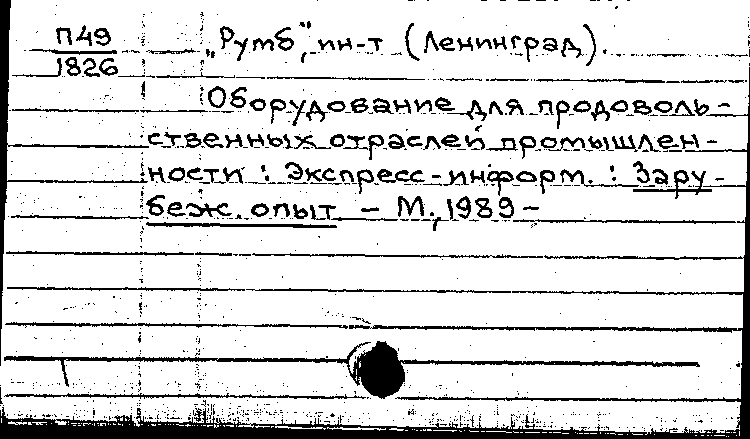 П49
1826
„Румб", ин-т (Ленинград).
Оборудование для продоволь-
ственных отраслей промышлен-
ности : Экспресс-информ. : Зару-
беж. опыт. – М., 1989 –